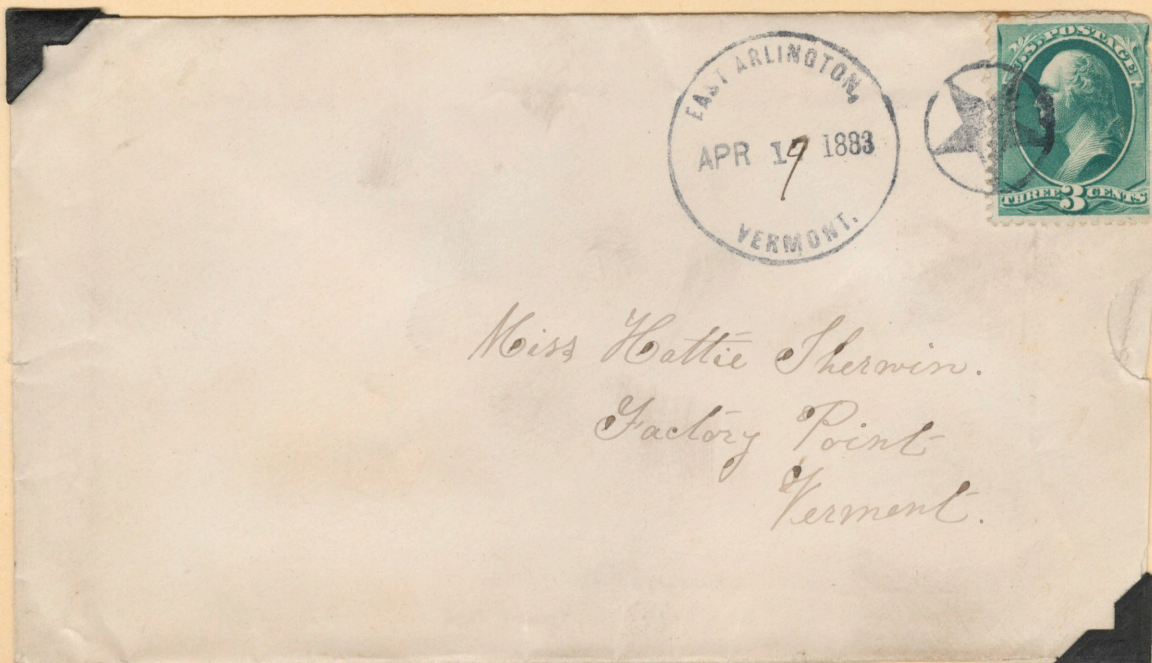 EAST ARLINGTON,
APR 19 1883
VERMONT.
U.S. POSTAGE
THREE 3 CENTS
Miss Hattie Sherwin.
Factory Point
Vermont.